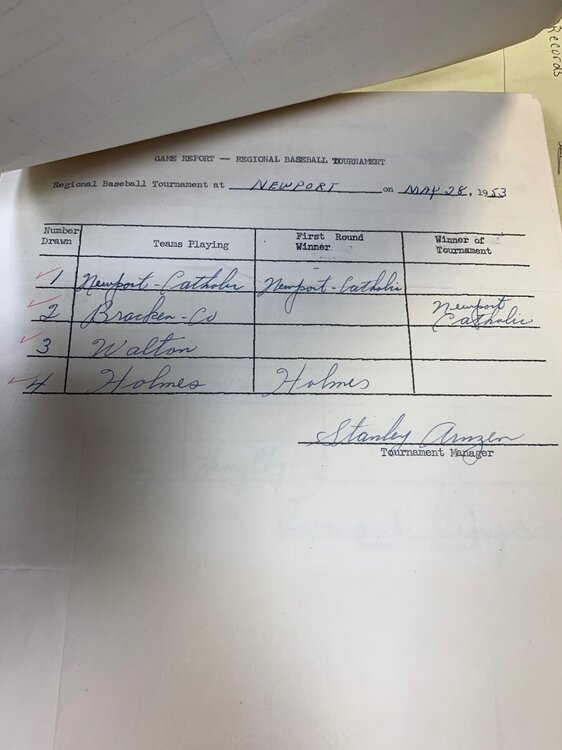 Records
GAME REPORT -- REGIONAL BASEBALL TOURNAMENT
Regional Baseball Tournament at NEWPORT on MAY 28, 1953
Number Drawn Teams Playing First Round Winner Winner of Tournament
1 Newport-Catholic Newport-Catholic
2 Bracken-Co Newport Catholic
3 Walton
4 Holmes Holmes
Stanley Arnzen
Tournament Manager